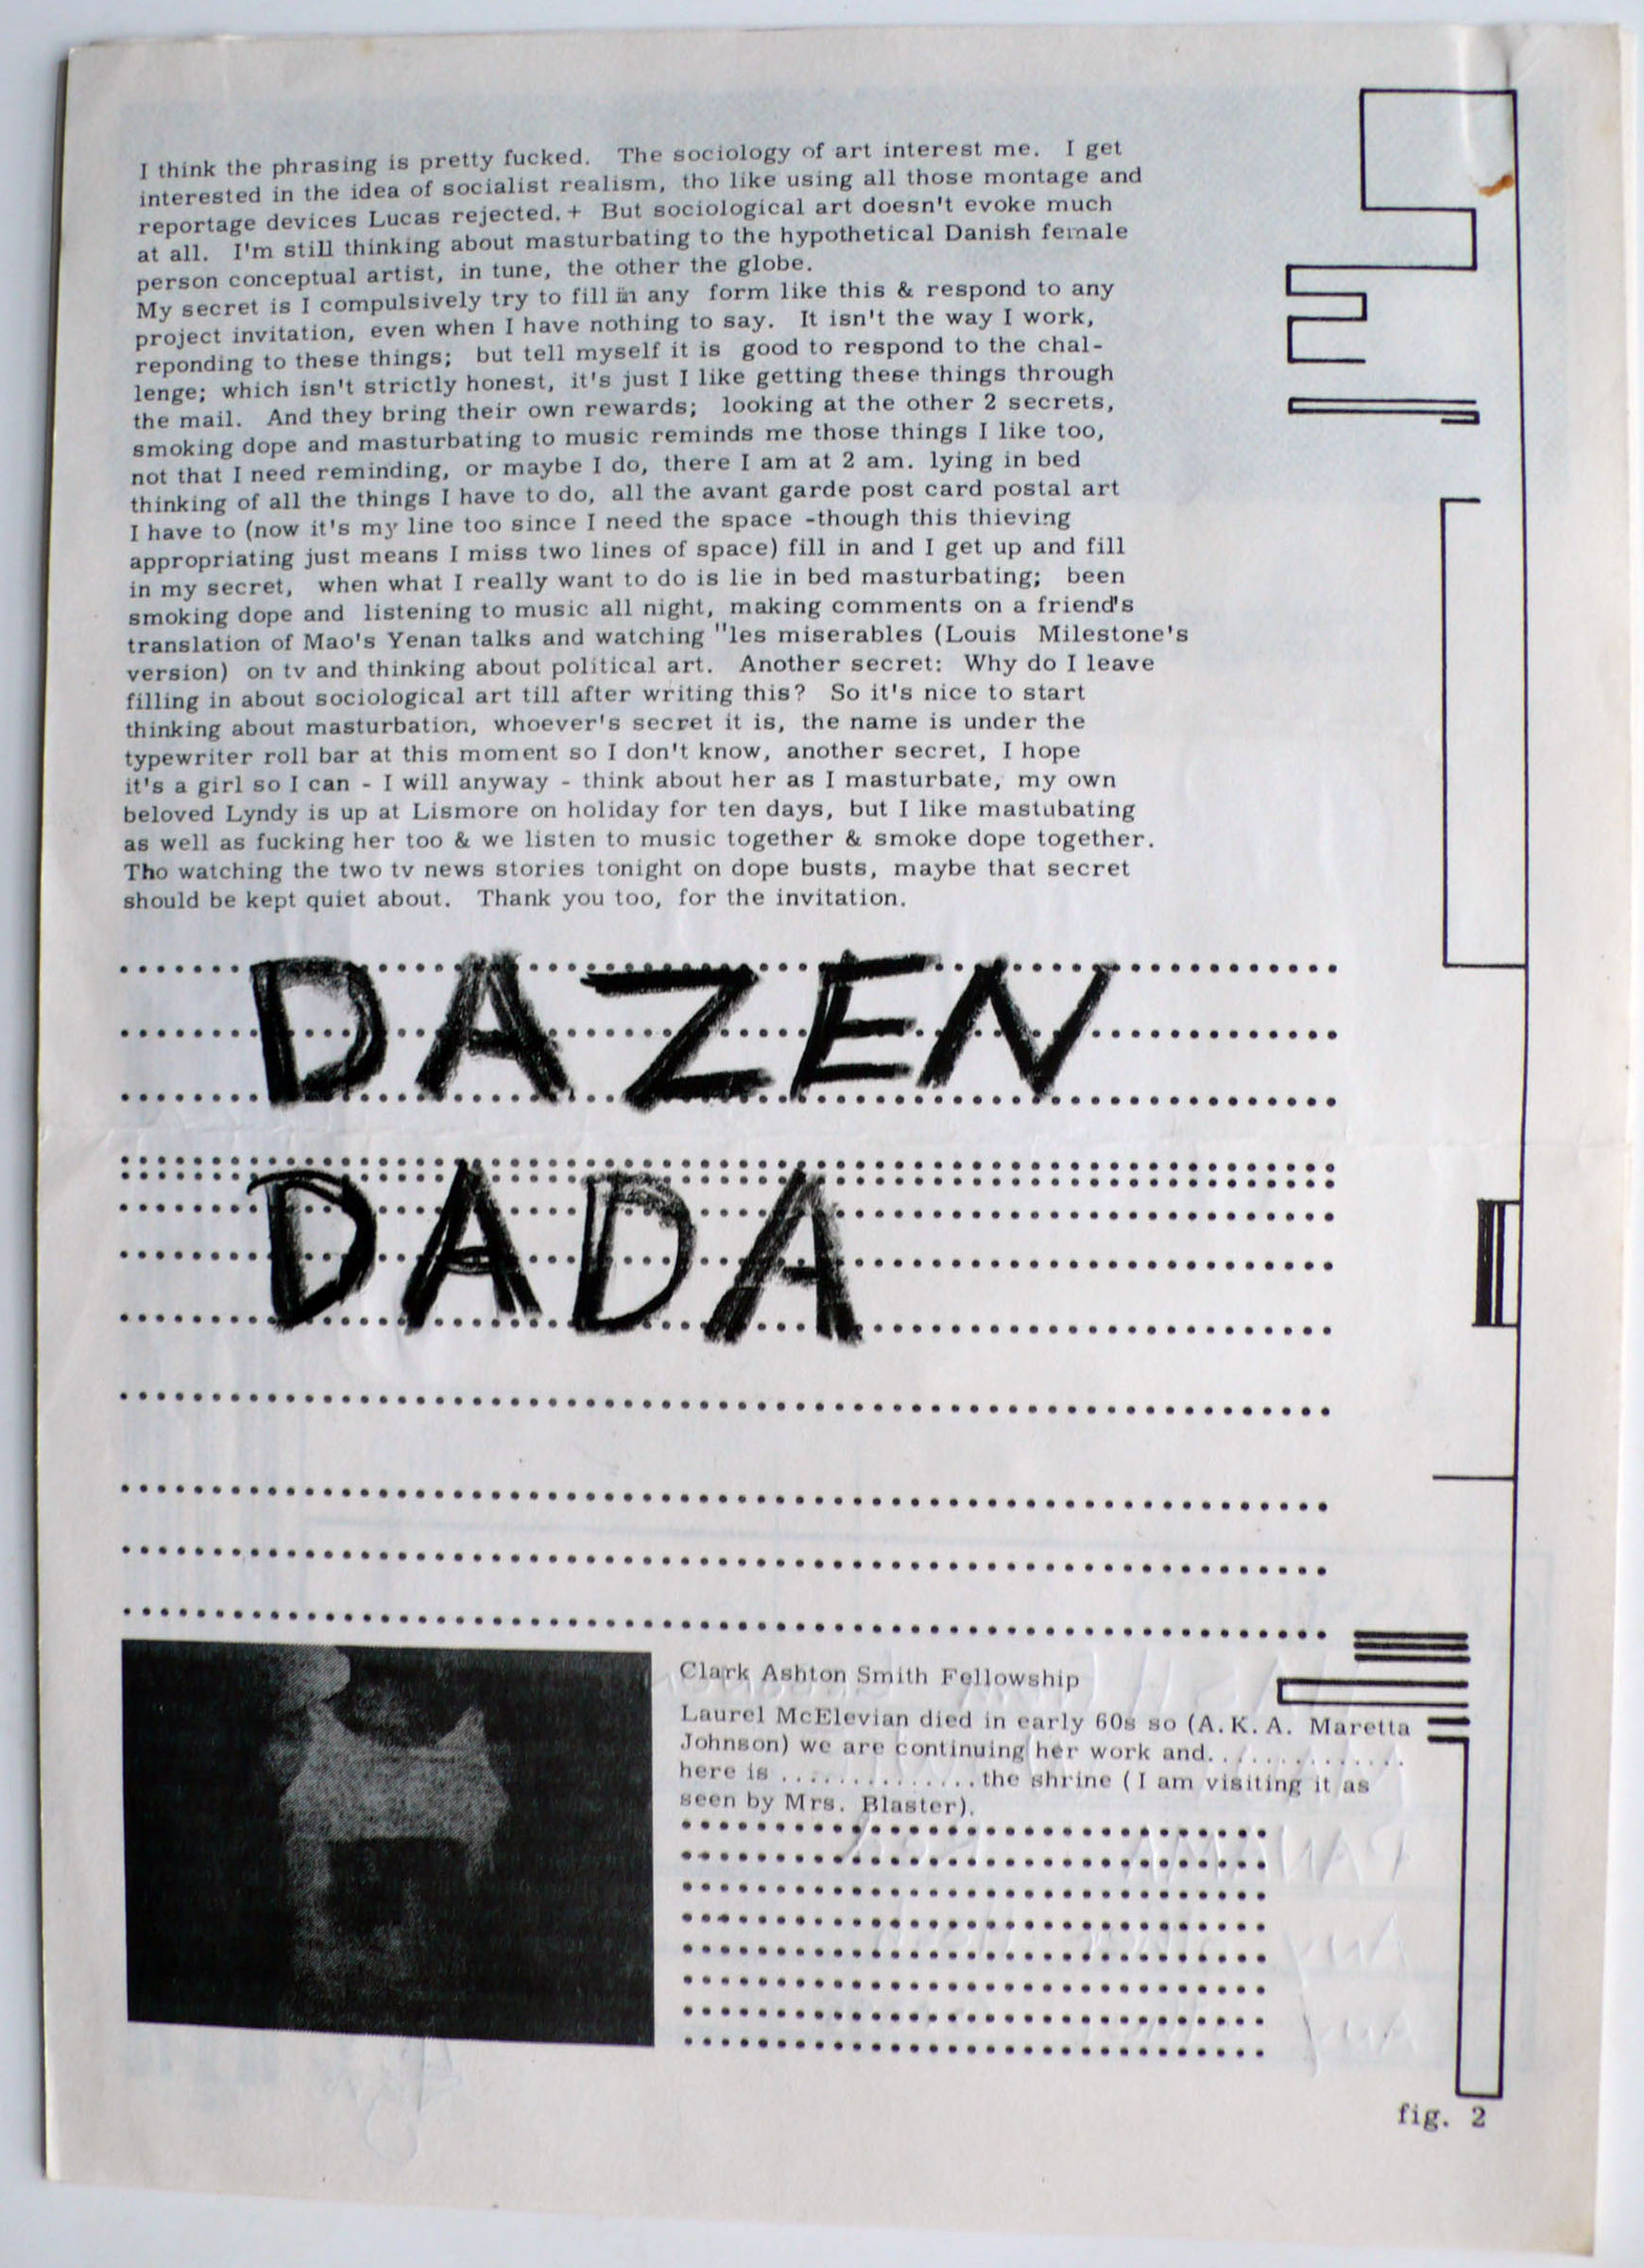 I think the phrasing is pretty fucked. The sociology of art interest me. I get
interested in the idea of socialist realism, tho like using all those montage and
reportage devices Lucas rejected. + But sociological art doesn't evoke much
at all. I'm still thinking about masturbating to the hypothetical Danish female
person conceptual artist, in tune, the other the globe.
My secret is I compulsively try to fill in any form like this & respond to any
project invitation, even when I have nothing to say. It isn't the way I work,
reponding to these things; but tell myself it is good to respond to the chal-
lenge; which isn't strictly honest, it's just I like getting these things through
the mail. And they bring their own rewards; looking at the other 2 secrets,
smoking dope and masturbating to music reminds me those things I like too,
not that I need reminding, or maybe I do, there I am at 2 am. lying in bed
thinking of all the things I have to do, all the avant garde post card postal art
I have to (now it's my line too since I need the space -though this thieving
appropriating just means I miss two lines of space) fill in and I get up and fill
in my secret, when what I really want to do is lie in bed masturbating; been
smoking dope and listening to music all night, making comments on a friend's
translation of Mao's Yenan talks and watching "les miserables (Louis Milestone's
version) on tv and thinking about political art. Another secret: Why do I leave
filling in about sociological art till after writing this? So it's nice to start
thinking about masturbation, whoever's secret it is, the name is under the
typewriter roll bar at this moment so I don't know, another secret, I hope
it's a girl so I can - I will anyway - think about her as I masturbate, my own
beloved Lyndy is up at Lismore on holiday for ten days, but I like mastubating
as well as fucking her too & we listen to music together & smoke dope together.
Tho watching the two tv news stories tonight on dope busts, maybe that secret
should be kept quiet about. Thank you too, for the invitation.
DAZEN
DADA
Clark Ashton Smith Fellowship
Laurel McElevian died in early 60s so (A.K.A. Maretta
Johnson) we are continuing her work and..............
here is ..............the shrine (I am visiting it as
seen by Mrs. Blaster).
fig. 2